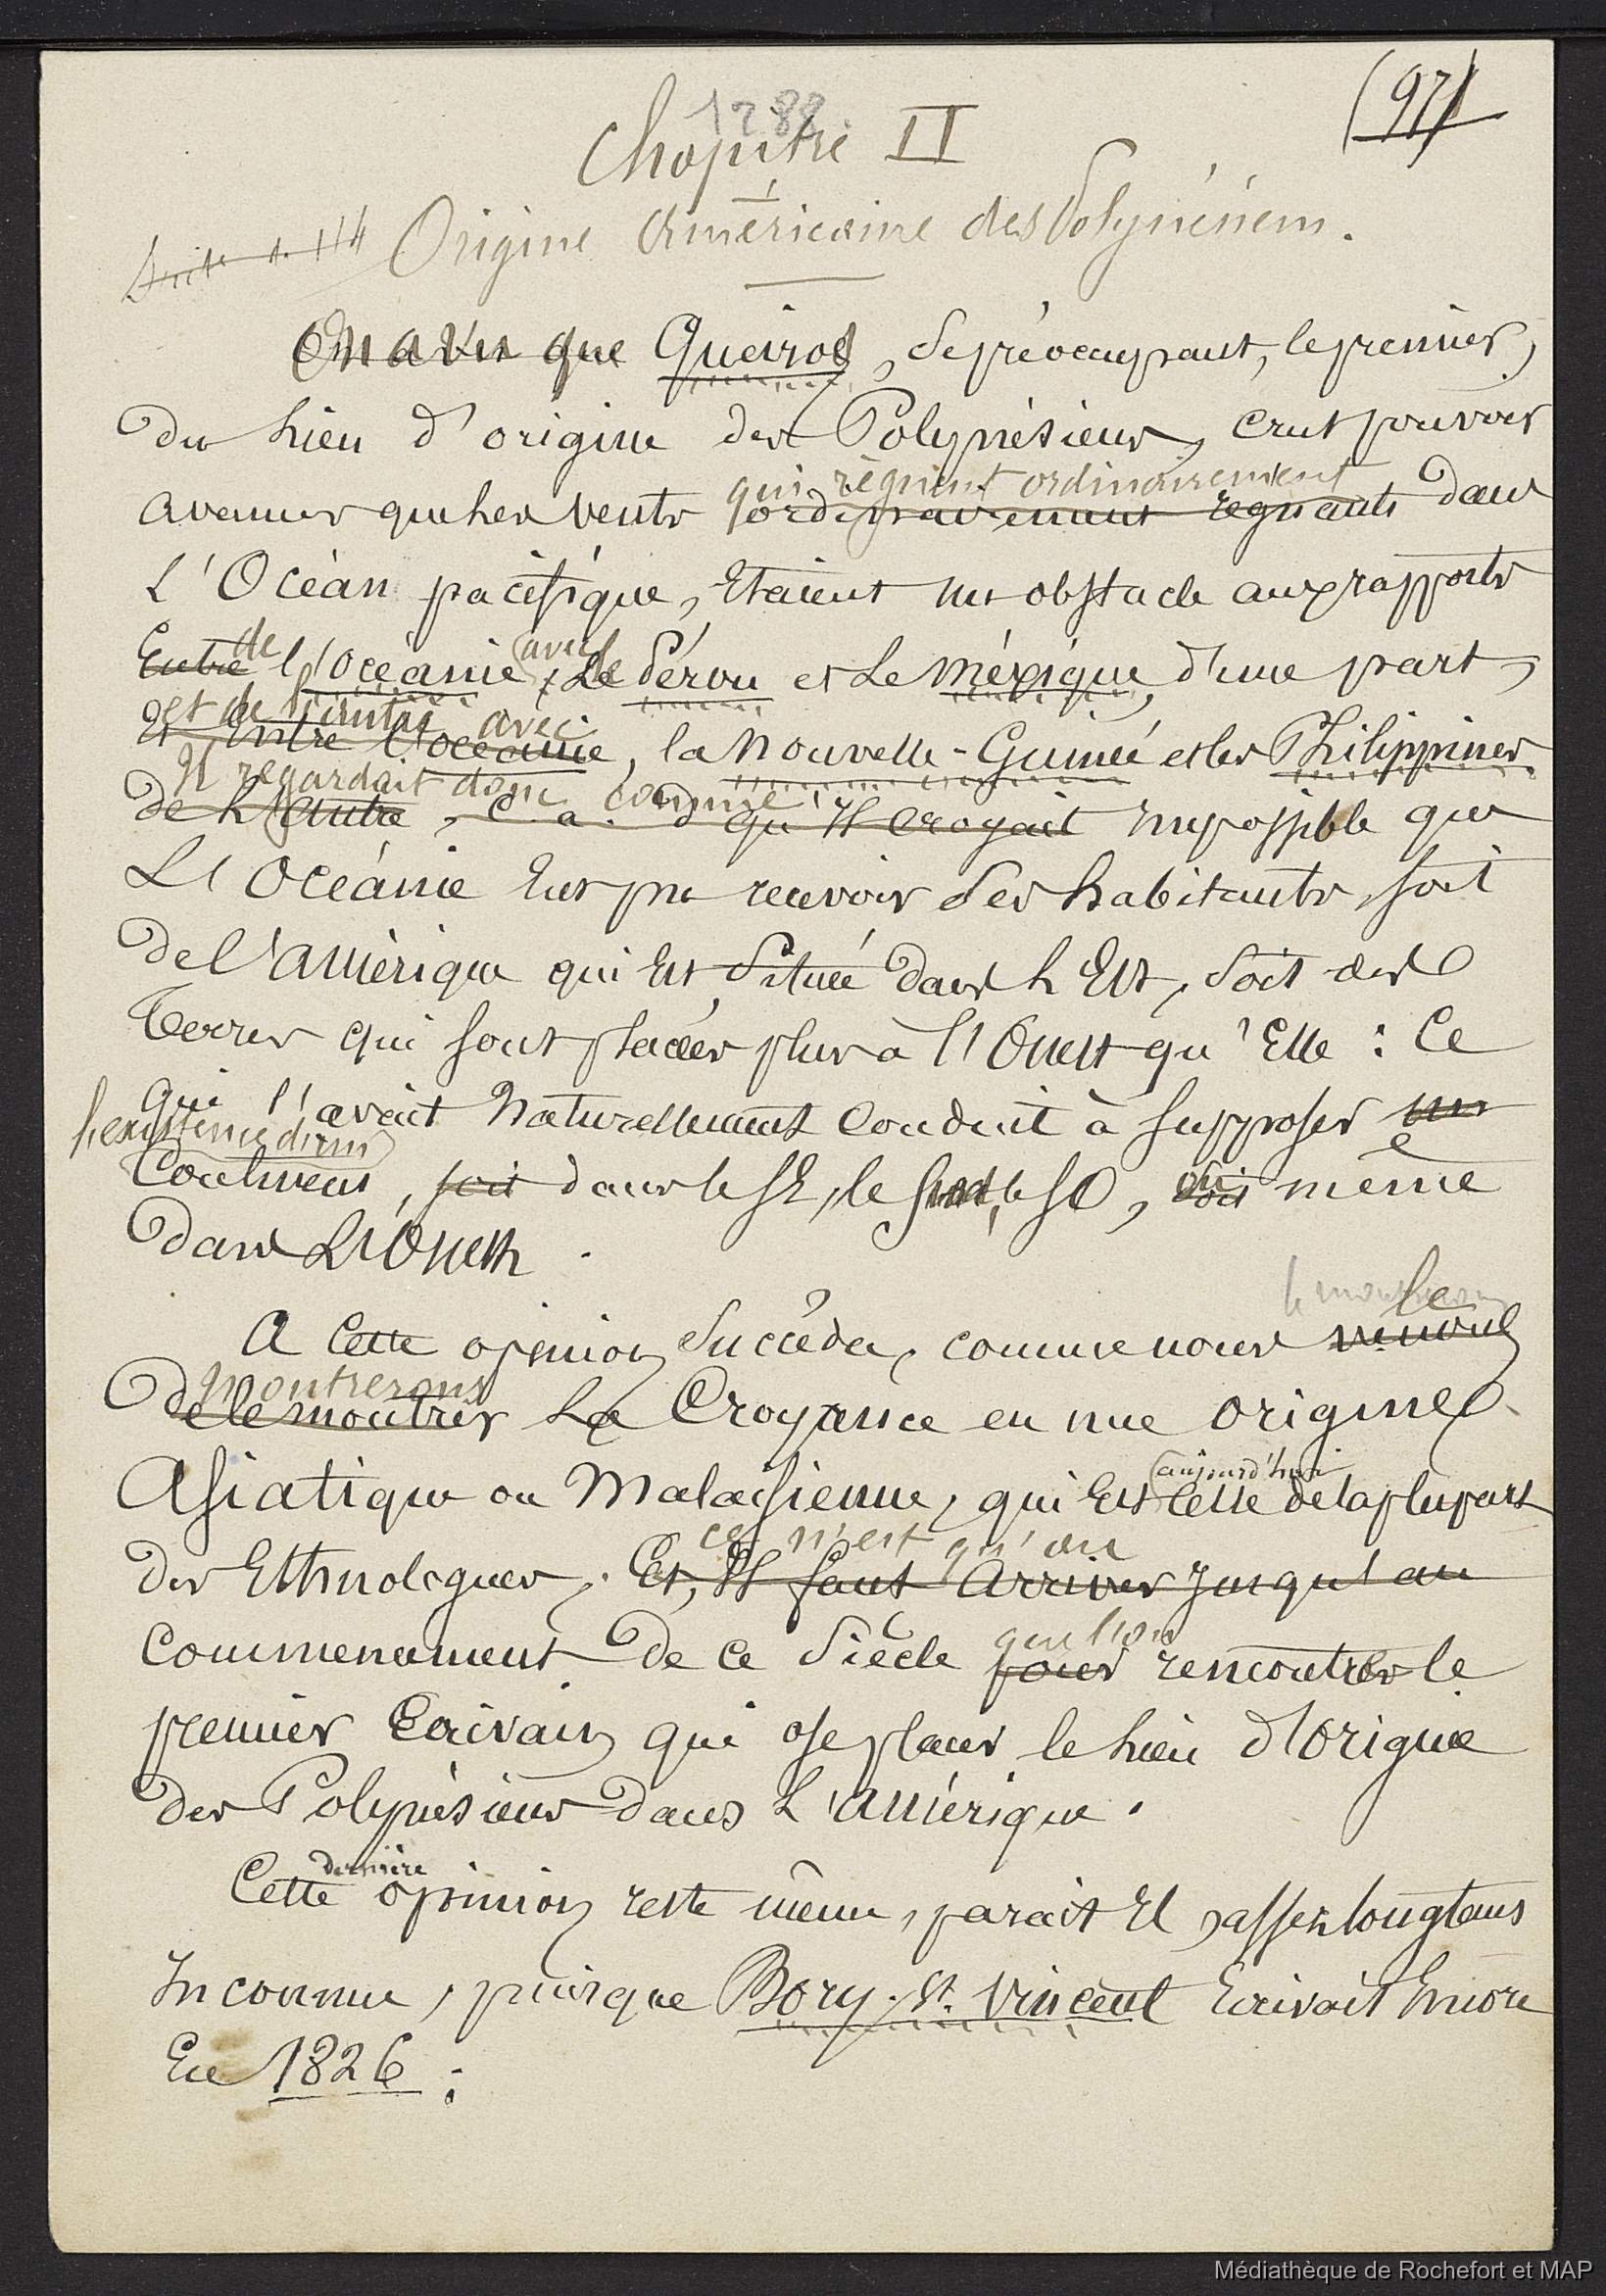 (97)
1288
Chapitre II
Suite n. 114 Origine Américaine des Polynésiens.
On a vu que Queiros, se préoccupant, le premier,
du lieu d'origine des Polynésiens, crut pouvoir
qui règnent ordinairement
avancer que les vents ordinairement regnants dans
L'Océan pacifique, Etaient un obstacle aux rapports
de avec
Entre l'Océanie, Le Pérou et Le Méxique, d'une part,
et de l'autre avec
Et Entre l'océanie, la Nouvelle-Guinée et les Philippines
Il regardait donc comme
de L'autre, c. a. d qu'Il croyait impossible que
L'Océanie Eut pu recevoir ses habitants, soit
de l'amérique qui Est située dans L'Est, soit des
Terres qui sont placées plus à l'Ouest qu'Elle : Ce
qui l'avait naturellement conduit à supposer un
l'existence d'un
Continent, soit dans le SE, le Sud, le SO, ou soit même
dans L'Ouest.
le
A Cette opinion succéda, comme nous venons
montrerons
de le montrer La Croyance en une origine
aujourd'hui
Asiatique ou Malaisienne, qui Est celle de la plupart
ce n'est qu'au
des Ethnologues. Et, Il faut Arriver jusqu'au
que l'on
commencement de ce siècle pour rencontrer le
premier Ecrivain qui ose placer le lieu d'origine
des Polynésiens dans L'amérique.
dernière
Cette opinion reste même, parait Il, assez longtems
Inconnue, puisque Bory. St. Vincent Ecrivait Encore
En 1826 :
Médiathèque de Rochefort et MAP